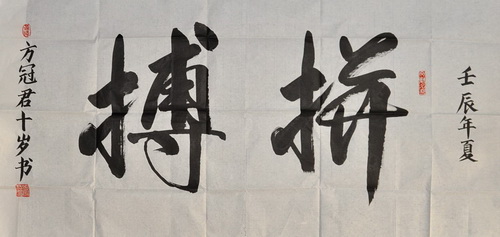 壬辰年夏
拼搏
方冠君十岁书